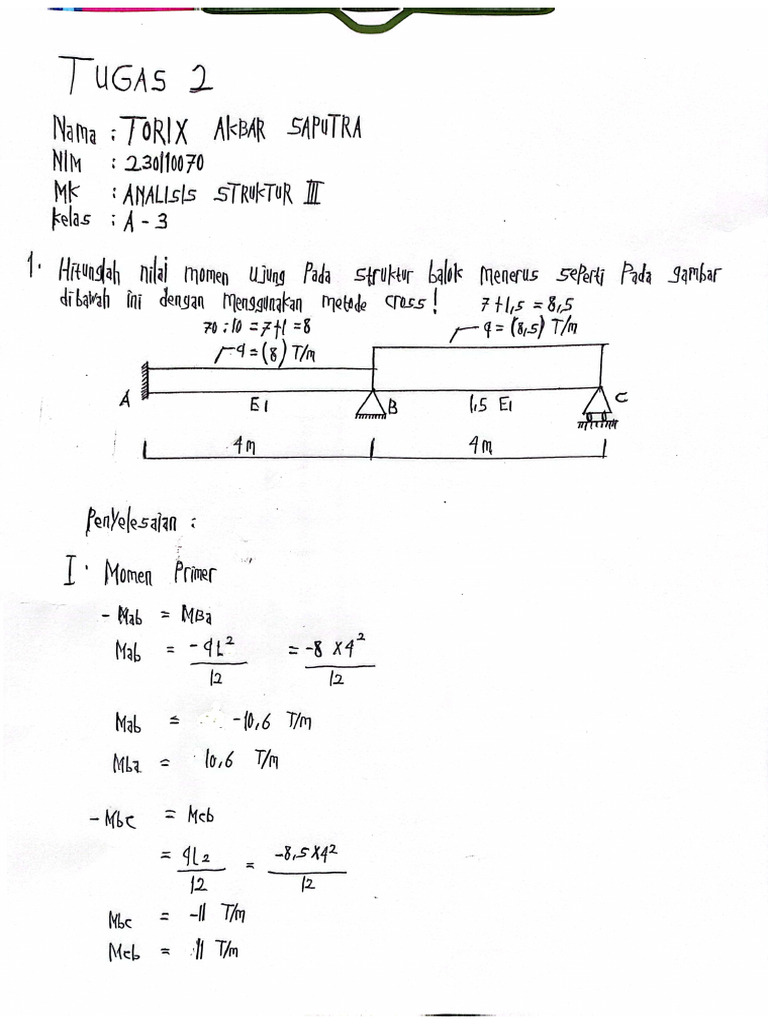 TUGAS 2
Nama : TORIX AKBAR SAPUTRA
NIM : 230110070
MK : ANALISIS STRUKTUR III
Kelas : A - 3
1. Hitunglah nilai momen ujung Pada struktur balok menerus seperti Pada gambar
dibawah ini dengan menggunakan metode cross!
7+1,5 = 8,5
70 : 10 = 7+1 = 8
q = (8,5) T/m
q = (8) T/m
A EI B 1,5 EI C
4 m 4 m
Penyelesaian :
I. Momen Primer
- Mab = MBa
Mab = -qL² / 12 = -8 x 4² / 12
Mab = -10,6 T/m
Mba = 10,6 T/m
- Mbc = Mcb
= qL2 / 12 = -8,5 x 4² / 12
Mbc = -11 T/m
Mcb = 11 T/m